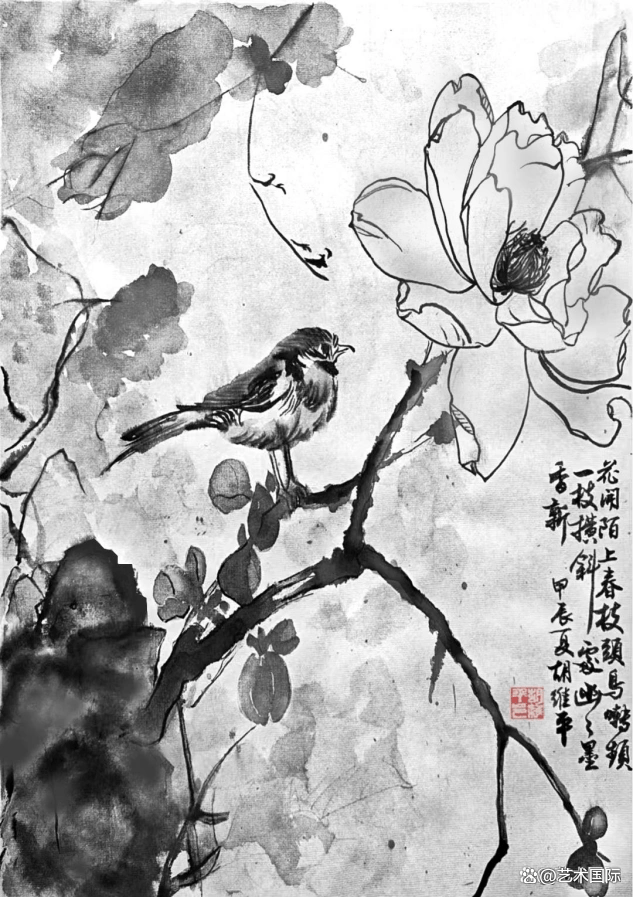 花開陌上春枝頭鳥囀頻
一枝橫斜處幽々墨
香新 甲辰夏胡維平
@艺术国际